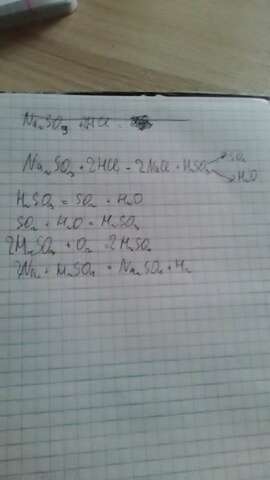 Na₂SO₃ + 2HCl
Na₂SO₃ + 2HCl = 2NaCl + H₂SO₃ SO₂ H₂O
H₂SO₃ = SO₂ + H₂O
SO₂ + H₂O = H₂SO₃
2H₂SO₃ + O₂ = 2H₂SO₄
2Na + H₂SO₄ = Na₂SO₄ + H₂